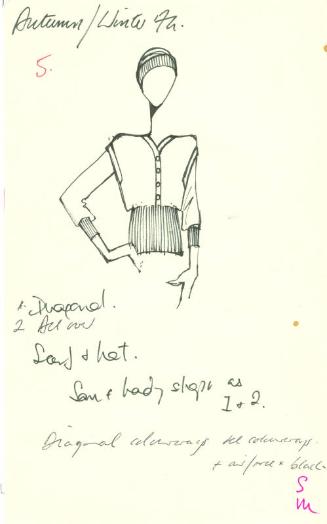 Autumn/Winter
5.
1. Diagonal.
2 All over
Scarf + hat.
Same body shape as
1 + 2.
Diagonal colourways all colourways.
+ airforce + black
S
M